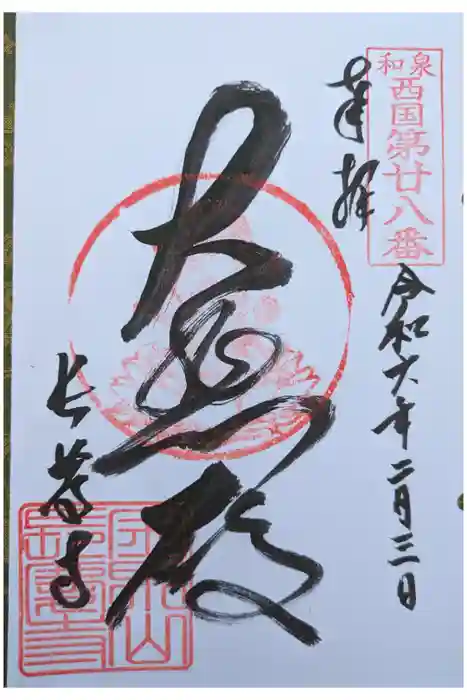 和泉
西国第廿八番
奉拝
令和六年二月三日
大悲殿
長慶寺